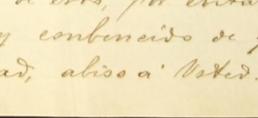 de esto, por evitar
y conbencido de
ad, abiso á Usted.